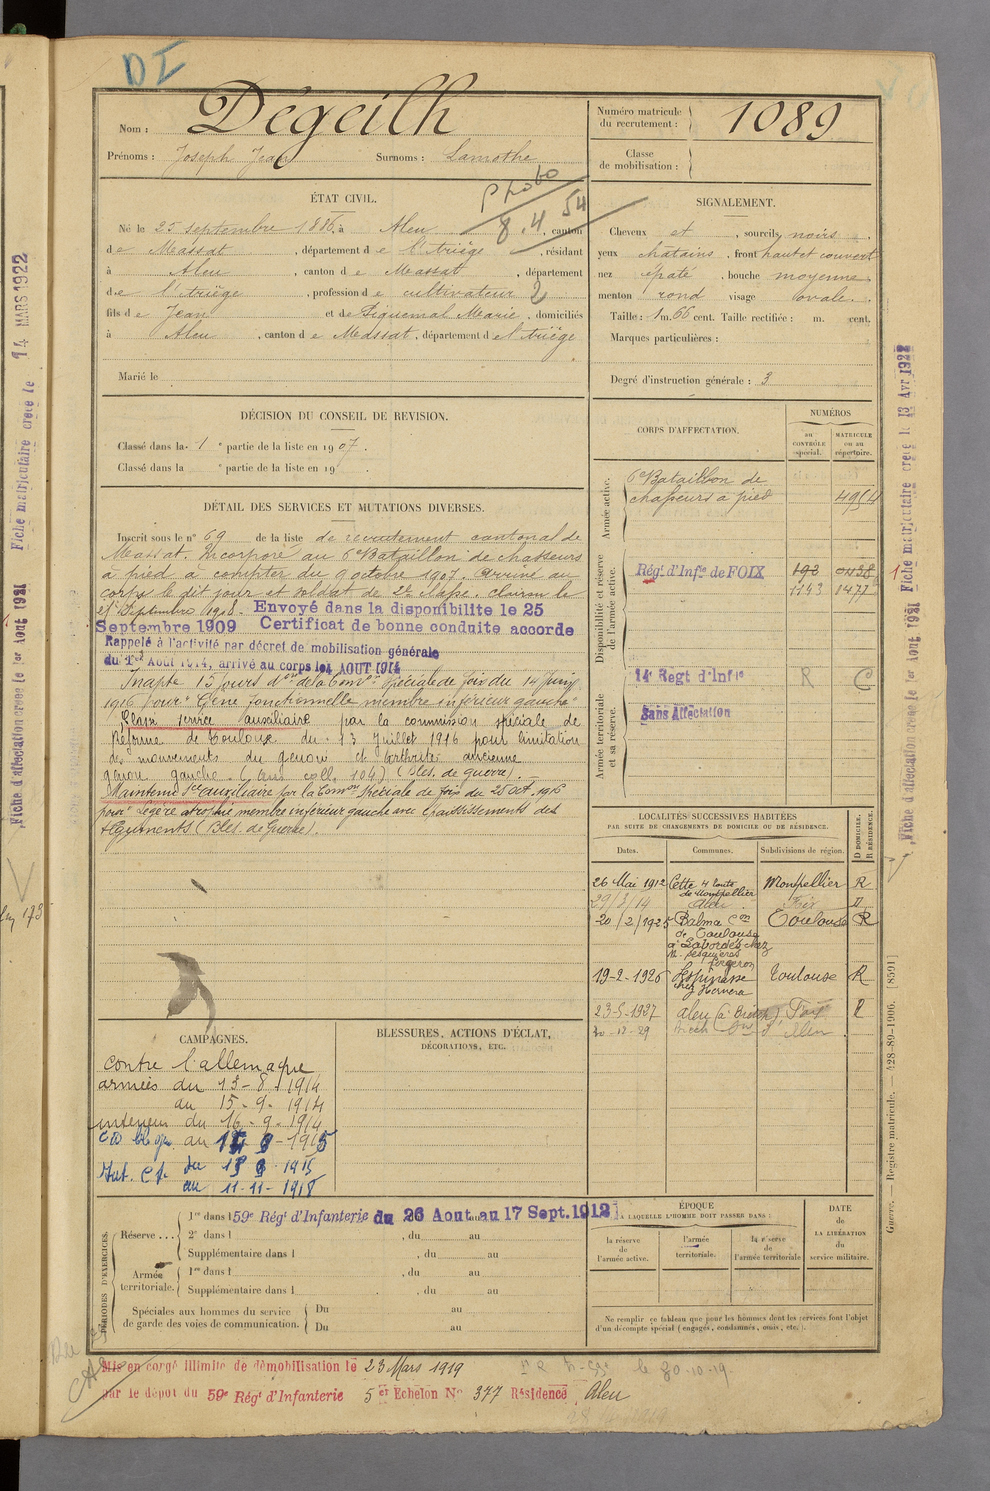 DI
Nom : Dégeilh
Numéro matricule du recrutement : 1089
Prénoms : Joseph Jean Surnoms : Lamothe
Classe de mobilisation :
Photo
8.4.54
ÉTAT CIVIL.
Né le 25 septembre 1886, à Aleu, canton
de Massat, département de l'Ariège, résidant
à Aleu, canton de Massat, département
de l'Ariège, profession de cultivateur 2
fils de Jean et de Piquemal Marie, domiciliés
à Aleu, canton de Massat, département de l'Ariège
Marié le
SIGNALEMENT.
Cheveux et , sourcils noirs
yeux chatains, front haut et couvert
nez épaté, bouche moyenne
menton rond visage ovale.
Taille : 1 m. 66 cent. Taille rectifiée : m. cent.
Marques particulières :
Degré d'instruction générale : 3
DÉCISION DU CONSEIL DE REVISION.
Classé dans la 1 e partie de la liste en 1907.
Classé dans la e partie de la liste en 19 .
DÉTAIL DES SERVICES ET MUTATIONS DIVERSES.
Inscrit sous le n° 69 de la liste de recrutement cantonal de
Massat. Incorporé au 6e Bataillon de chasseurs
à pied à compter du 9 octobre 1907. Arrivé au
corps le dit jour et soldat de 2e classe. Clairon le
25 septembre 1908. Envoyé dans la disponibilite le 25
Septembre 1909 Certificat de bonne conduite accorde
Rappelé à l'activité par décret de mobilisation générale
du 1er Aout 1914, arrivé au corps le 4 AOUT 1914
Inapte 15 jours don de la Comon Spéciale de Foix du 14 juin
1916 pour "Gêne fonctionnelle membre inférieur gauche"
Classé service auxiliaire par la commission spéciale de
Réforme de Toulouse du 13 Juillet 1916 pour limitation
des mouvements du genou et arthrite ancienne
genou gauche. (Bles. de guerre).
Maintenu sce auxiliaire par la Comon Spéciale de Foix du 25 Oct. 1916
pour "Légère atrophie membre inférieur gauche avec épaississements des
téguments (Bles. de Guerre).
CORPS D'AFFECTATION.
NUMÉROS
au CONTRÔLE spécial.
MATRICULE ou au répertoire.
Armée active.
6e Bataillon de
chasseurs à pied 4954
Disponibilité et réserve de l'armée active.
Régt d'Infie de FOIX
1143 1477
Armée territoriale et sa réserve.
14e Regt d'Infie R C
Sans Affectation
LOCALITÉS SUCCESSIVES HABITÉES
PAR SUITE DE CHANGEMENTS DE DOMICILE OU DE RÉSIDENCE.
Dates. Communes. Subdivisions de région. D DOMICILE. R RÉSIDENCE.
26 Mai 1912 Cette 4 route de Montpellier Montpellier R
29/3/14 Aleu
20/2/1925 Balma Con de Toulouse Toulouse R
19-2-1926 Lespinasse chez Toulouse R
23-5-1927 Aleu Foix R
CAMPAGNES.
contre l'allemagne
armées du 13-8-1914
au 15-9-1914
intérieur du 16-9-1914
au 1915
au 11-11-1918
BLESSURES, ACTIONS D'ÉCLAT,
DÉCORATIONS, ETC.
PÉRIODES D'EXERCICES.
Réserve ...
1re dans l 59e Régt d'Infanterie du 26 Aout au 17 Sept. 1912
2e dans l , du au
Supplémentaire dans l , du au
Armée territoriale.
1re dans l , du au
Supplémentaire dans l , du au
Spéciales aux hommes du service de garde des voies de communication.
Du au
Du au
ÉPOQUE
À LAQUELLE L'HOMME DOIT PASSER DANS :
la réserve de l'armée active.
l'armée territoriale.
la réserve de l'armée territoriale
DATE de LA LIBÉRATION du service militaire.
Ne remplir ce tableau que pour les hommes dont les services font l'objet
d'un décompte spécial (engagés, condamnés, omis, etc.).
Mis en congé illimité de démobilisation le 23 Mars 1919
par le dépôt du 59e Régt d'Infanterie 5e Echelon No 377 Résidence Aleu
le 30-10-19.
Fiche d'affectation créée le 1er Aout 1921 Fiche matriculaire créée le 14 MARS 1922
Fiche d'affectation créée le 1er Aout 1921 Fiche matriculaire créée le 13 Avr 1922
Guerre. — Registre matricule. — 428-89-1906. [8591]